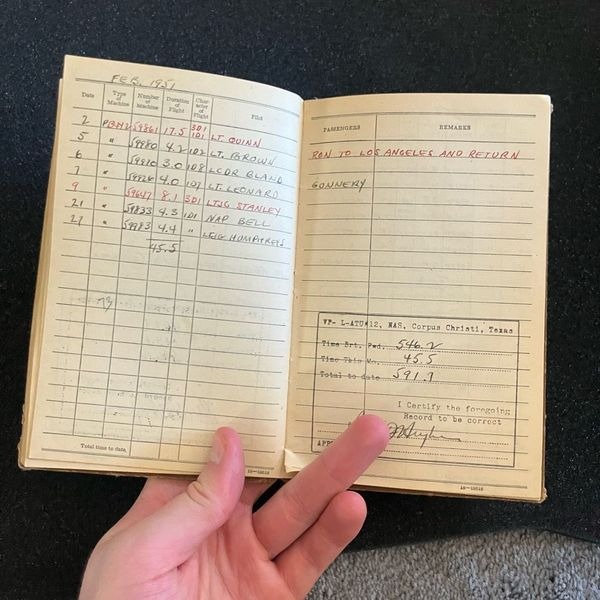 FEB. 1951
Date Type of Machine Number of Machine Duration of Flight Character of Flight Pilot
2 59861 17.5 3D1 1D1 LT. QUINN
5 " 59980 4.2 1D2 LT. BROWN
6 " 59910 3.0 1D8 LCDR BLAND
7 " 59926 4.0 1D7 LT. LEONARD
9 " 59647 8.1 3D1 LTJG STANLEY
21 " 59833 4.3 1D1 NAP BELL
27 " 59983 4.4 " LTJG HUMPHREYS
45.5
Total time to date,
16—13615
PASSENGERS REMARKS
RON TO LOS ANGELES AND RETURN
GUNNERY
VP- L-ATU#12, NAS, Corpus Christi, Texas
Time Brt. Fwd. 546.2
Time This Mo. 45.5
Total to date 591.7
I Certify the foregoing
Record to be correct